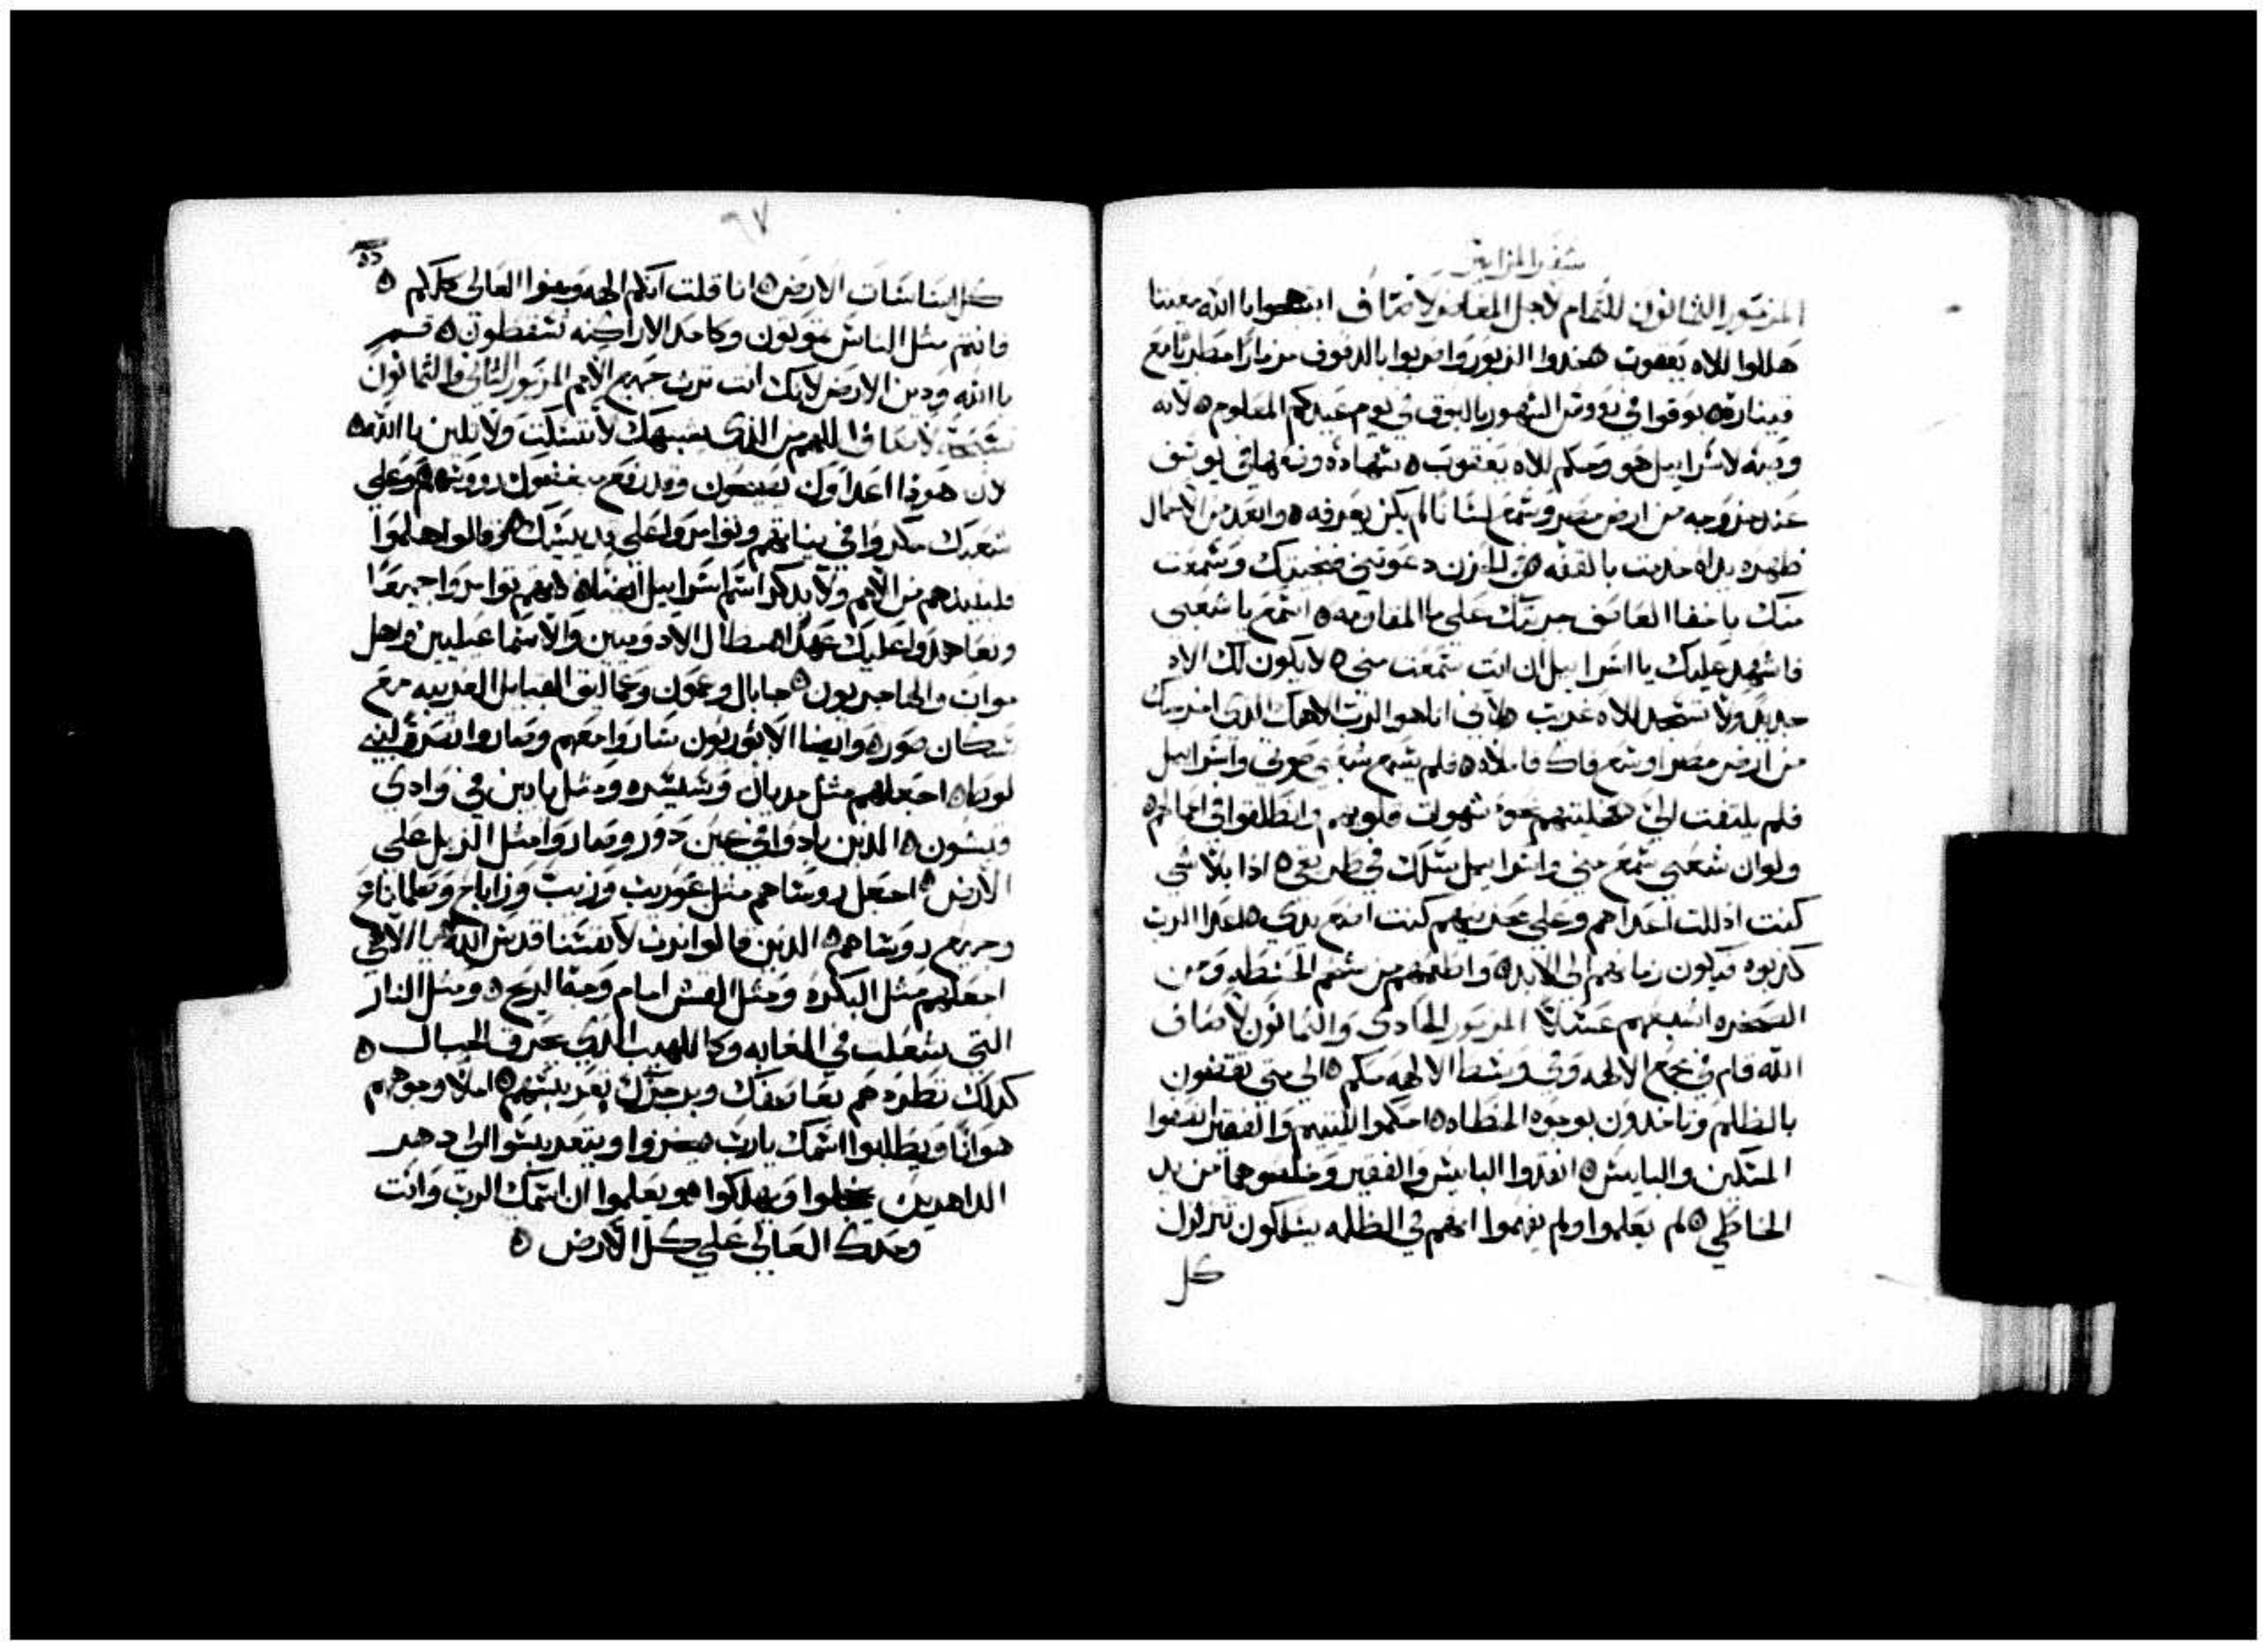 سفر المزامير
المزمور الثمانون للتمام لاجل المعاصر لاصاف ابتهجوا باالله معيننا
هللوا للاه يعقوب خدوا الزبور واضربوا بالدفوف مزمارا مطربا مع
قيناره بوقوا في رووس الشهور بالبوق في يوم عيدكم المعلوم لانه
وصيه لاسراييل هو وحكم للاه يعقوب شهاده وضعها في يوسف
عند خروجه من ارض مصر وسمع لسانا لم يكن يعرفه وابعد من الاحمال
ظهره يداه خدمت بالقفه في الحزن دعوتني فنجيتك وسمعت
منك باخفا العاصف جربتك علي ما المقاومه اسمع يا شعبي
فاشهد عليك يا اسراييل ان انت سمعت مني لا يكون لك الاه
جديد ولا تسجد للاه غريب لاني انا هو الرب الاهك الدي اخرجتك
من ارض مصر اوسع فاك فاملاه فلم يسمع شعبي صوتي واسراييل
فلم يلتفت الي فخليتهم نحو شهوات قلوبهم وانطلقوا في اعمالهم
ولو ان شعبي سمع مني واسراييل سلك في طريقي اذا بلاشي
كنت اذللت اعداهم وعلي محزنيهم كنت اضع يدي اعدا الرب
كدبوه فيكون زمانهم الي الابد واطعمهم من شحم الحنطه ومن
الصخره اشبعهم عسلا المزمور الحادي والثمانون لاصاف
الله قام في مجمع الالهه وفي وسط الالهه يحكم الي متي تقضون
بالظلم وتاخدون بوجوه الخطاه احكموا لليتيم والفقير انصفوا
المسكين والبايس انقدوا البايس والفقير وخلصوهما من يد
الخاطي لم يعلموا ولم يفهموا انهم في الظلمه يسلكون تتزلزل
كل
٩٧
كل اساسات الارض انا قلت انكم الهه وبنوا العالي كلكم
فانتم مثل الناس تموتون وكاحد الاراكنه تسقطون قم
ياالله ودين الارض لانك انت ترث جميع الامم المزمور الثاني والثمانون
تسبحه لاصاف اللهم من الذي يشبهك لا تسكت ولا تلين ياالله
لان هوذا اعداوك يضجون وقد رفع مبغضوك رووسهم وعلي
شعبك مكروا في نياتهم وتوامروا علي قديسيك وقالوا هلموا
فلنبيدهم من الامم ولا يدكر اسم اسراييل ايضا لانهم توامروا جميعا
وتعاهدوا عليك عهدا مظال الادوميين والاسماعيليين واهل
مواب والهاجريون جابال وعمون وعماليق القبايل الغريبه مع
سكان صور وايضا الاثوريون ساروا معهم وصاروا نصره لبني
لوط اجعلهم مثل مديان وسيسره ومثل يابين في وادي
قيسون الذين بادوا في عين دور وصاروا مثل الزبل علي
الارض اجعل روساهم مثل عوريب وزيب وزاباح وصلمناع
وجميع روساهم الدين قالوا نرث لانفسنا قدس الله يا الاهي
اجعلهم مثل البكره ومثل القش امام وجه الريح ومثل النار
التي شعلت في الغابه وكاللهيب الذي يحرق الجبال
كدلك تطردهم بعاصفك وبرجزك تعربسهم املا وجوههم
هوانا ويطلبوا اسمك يارب يخزوا ويتعربسوا الي دهر
الداهرين يخجلوا ويهلكوا ويعلموا ان اسمك الرب وانت
وحدك العالي علي كل الارض